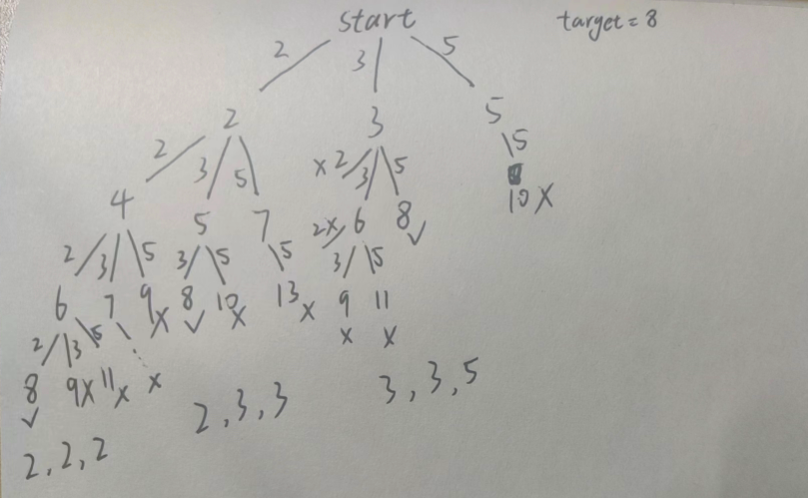 start target = 8
2 3 5
2 3 5
2 3 5 x 2 3 5 5
4 5 7 2x 6 8 ✓ 10 x
2 3 5 3 5 5 3 5
6 7 9 x 8 ✓ 10 x 13 x 9 x 11 x
2 3 5
8 ✓ 9 x 11 x x
2, 2, 2 2, 3, 3 3, 3, 5